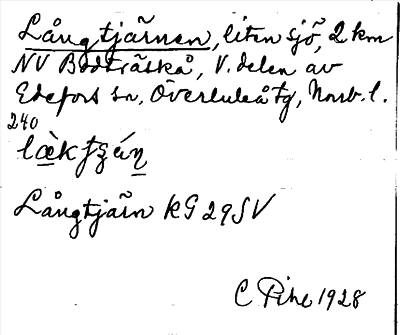 Långtjärnen, liten sjö, 2 km
NV Bodträskå, V. delen av
Edefors sn, Överluleå tg, Norrb. l.
240
Långtjärn KG 29 SV
C Pihl 1928